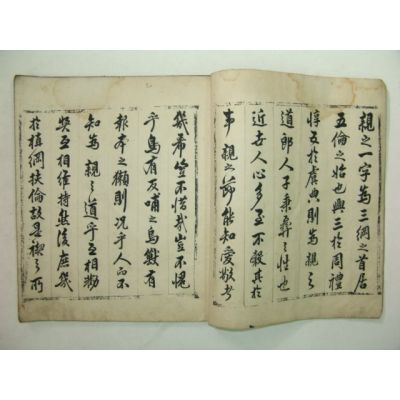 親之一字爲三綱之首居
五倫之始也興三於周禮
惇五於虞典則爲親之
道郎人子秉彛之性也
近世人心多至不殺其於
事親之節能知愛敬者
幾希豈不惜哉豈不愧
乎烏有反哺之鳥獸有
報本之獺則况乎人而不
知爲親之道乎互相勸
奬互相維持然後庶幾
於植綱扶倫故是禊之所